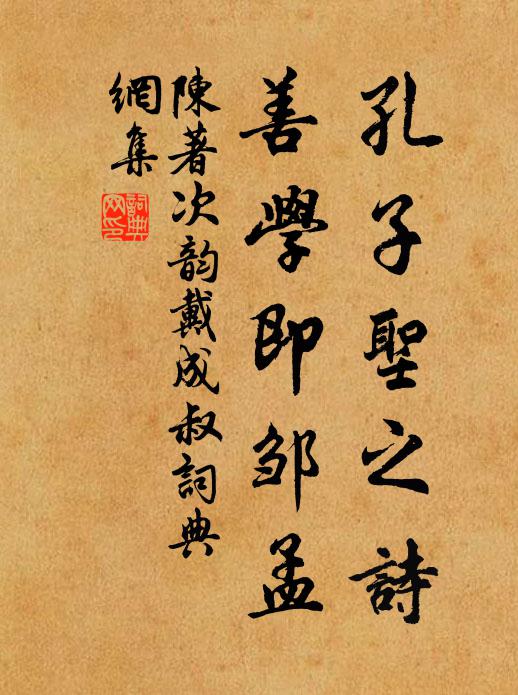 孔子聖之詩
善學即邹孟
陳著次韵戴成叔詞典
網集
詞典
网印